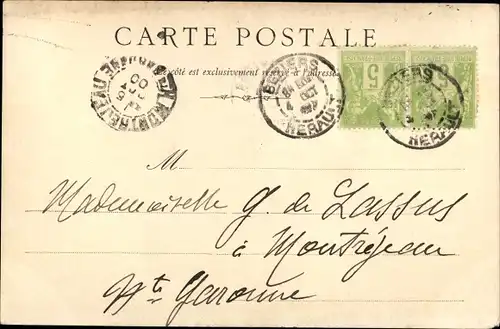 CARTE POSTALE
Ce côté est exclusivement réservé à l'adresse
BEZIERS
OCT
HERAULT
5
BEZIERS
HERAULT
MONTREJEAU
OCT
00
M
Mademoiselle G. de Lassus
à Montréjeau
Hte Garonne